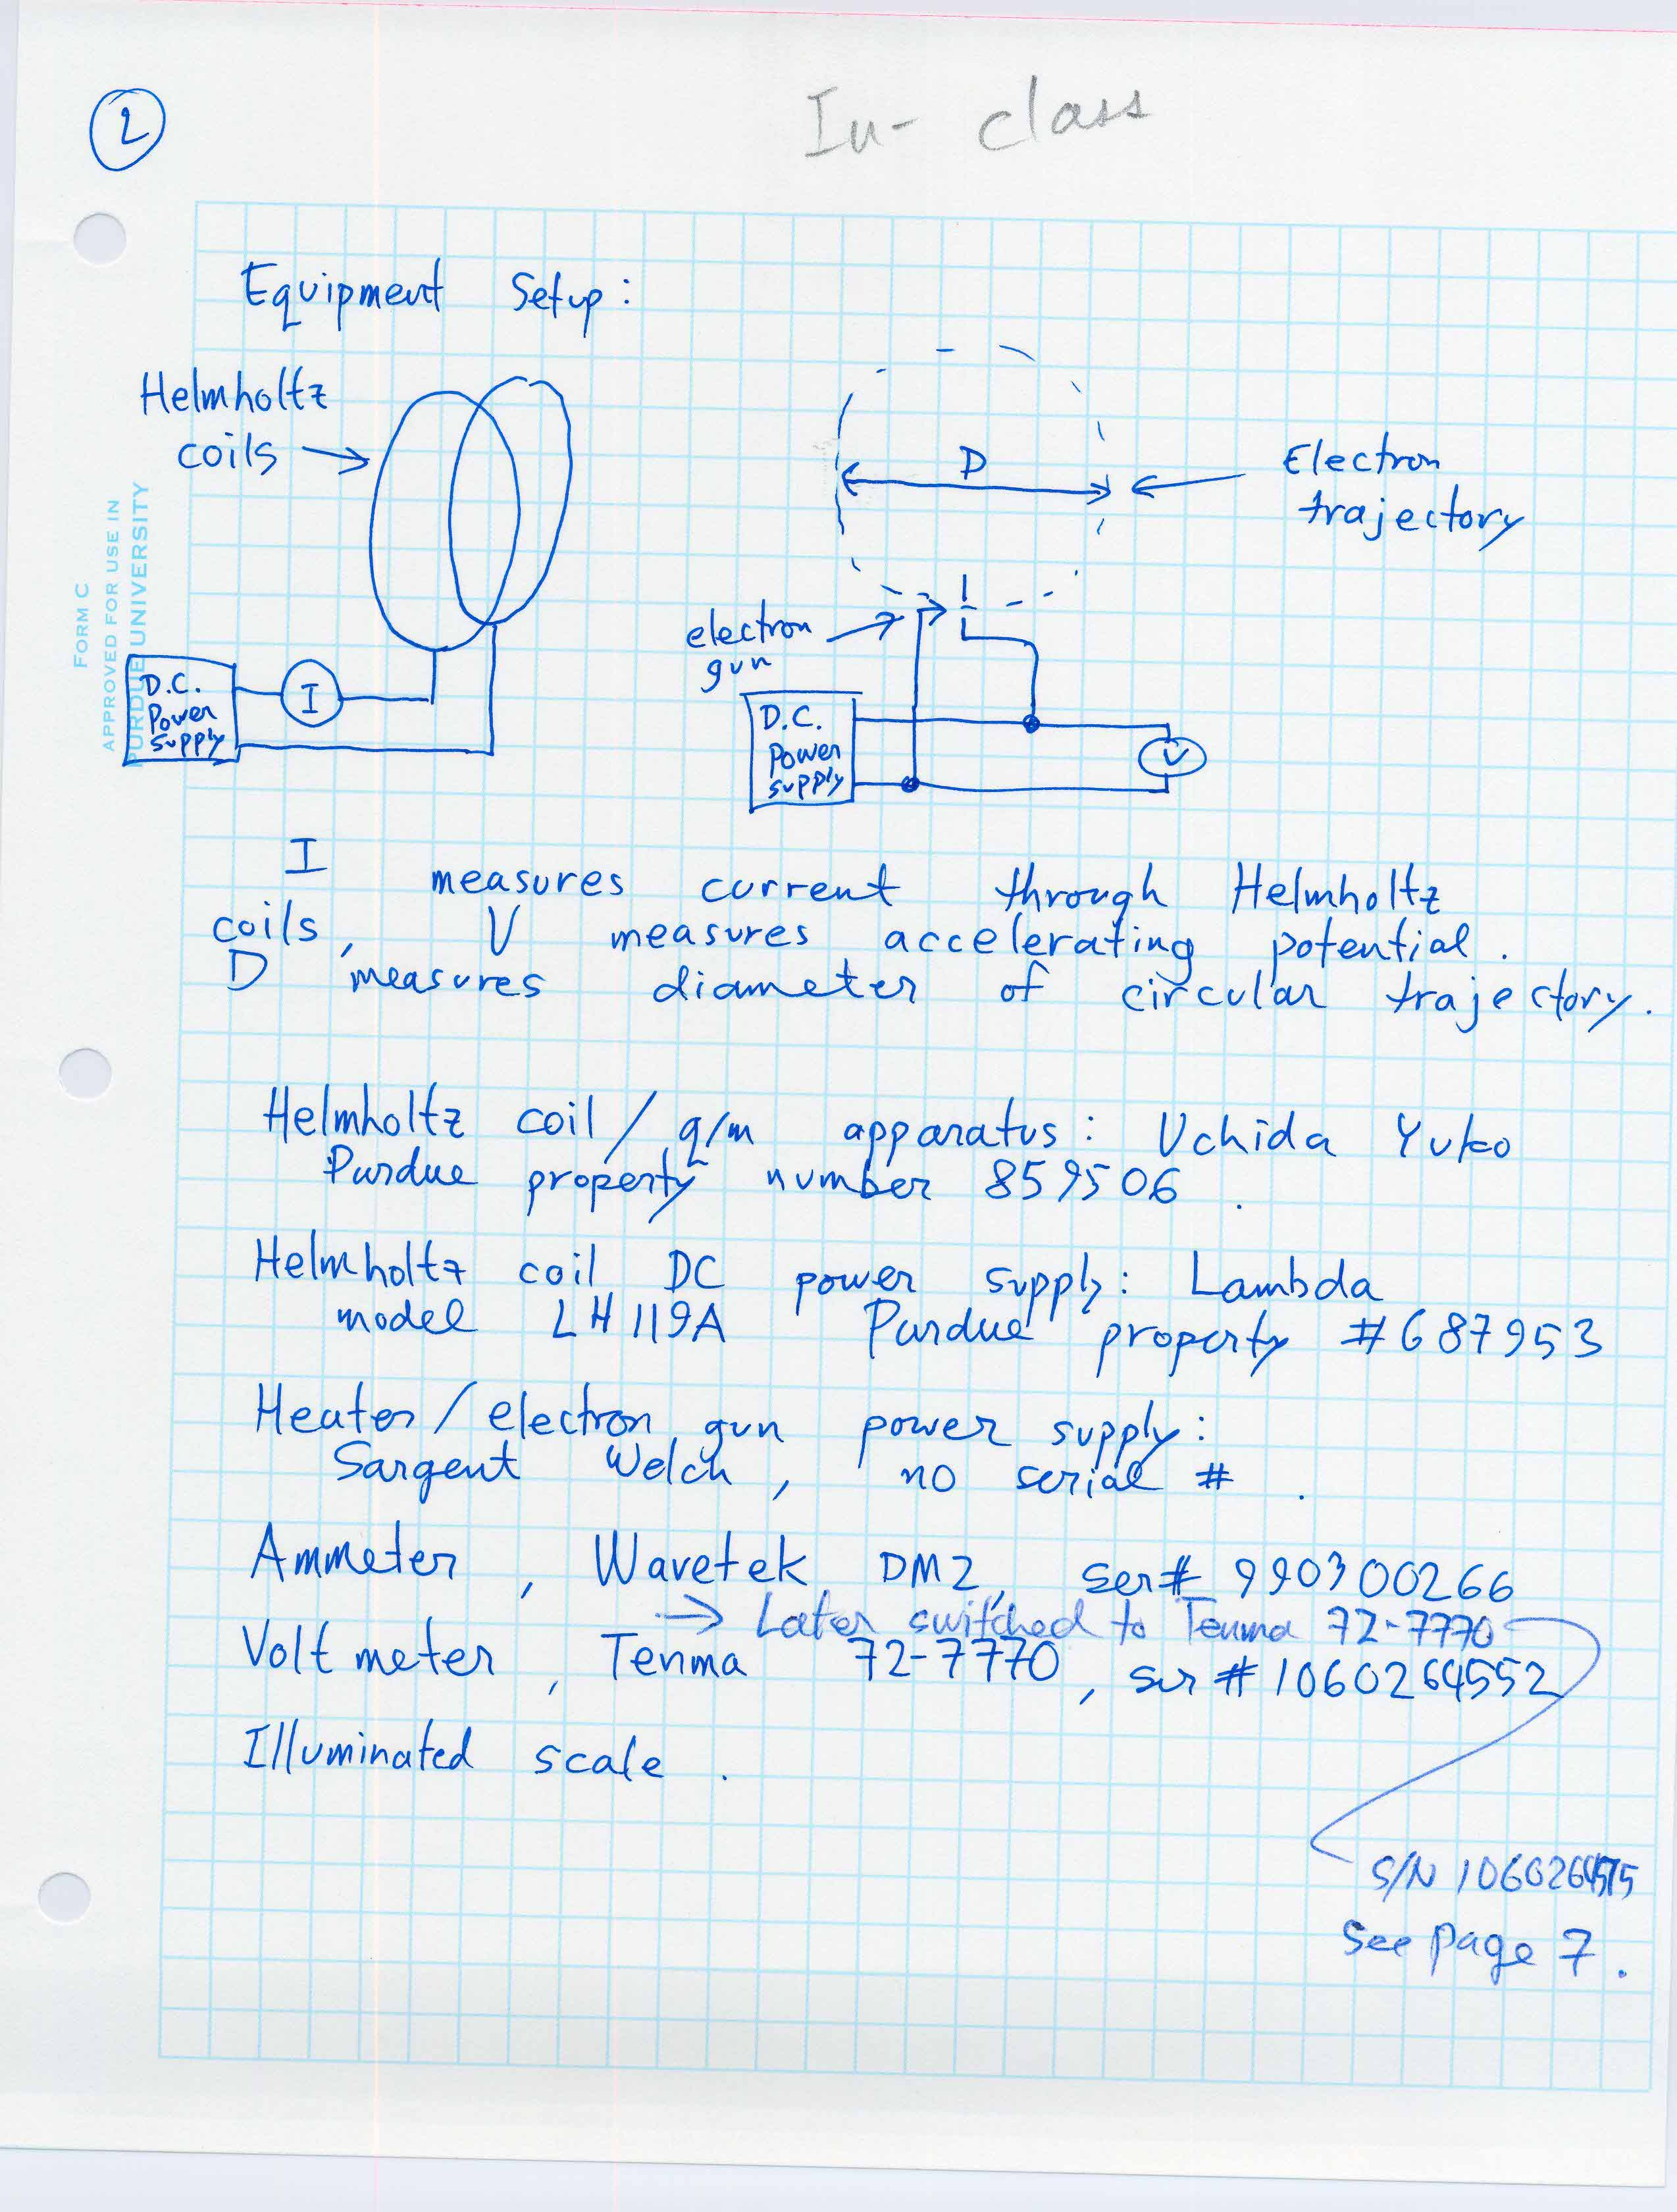 2
In-class
Equipment Setup:
Helmholtz
coils
D
Electron
trajectory
FORM C
APPROVED FOR USE IN
PURDUE UNIVERSITY
electron
gun
D.C.
Power
supply
I
D.C.
Power
supply
V
I measures current through Helmholtz
coils, V measures accelerating potential.
D measures diameter of circular trajectory.
Helmholtz coil / q/m apparatus: Uchida Yuko
Purdue property number 859506.
Helmholtz coil DC power supply: Lambda
model LH119A Purdue property #687953
Heater/electron gun power supply:
Sargent Welch, no serial #.
Ammeter, Wavetek DM2, ser# 990300266
→ Later switched to Tenma 72-7770
Volt meter, Tenma 72-7770, ser #1060264552
Illuminated scale.
S/N
See page 7.